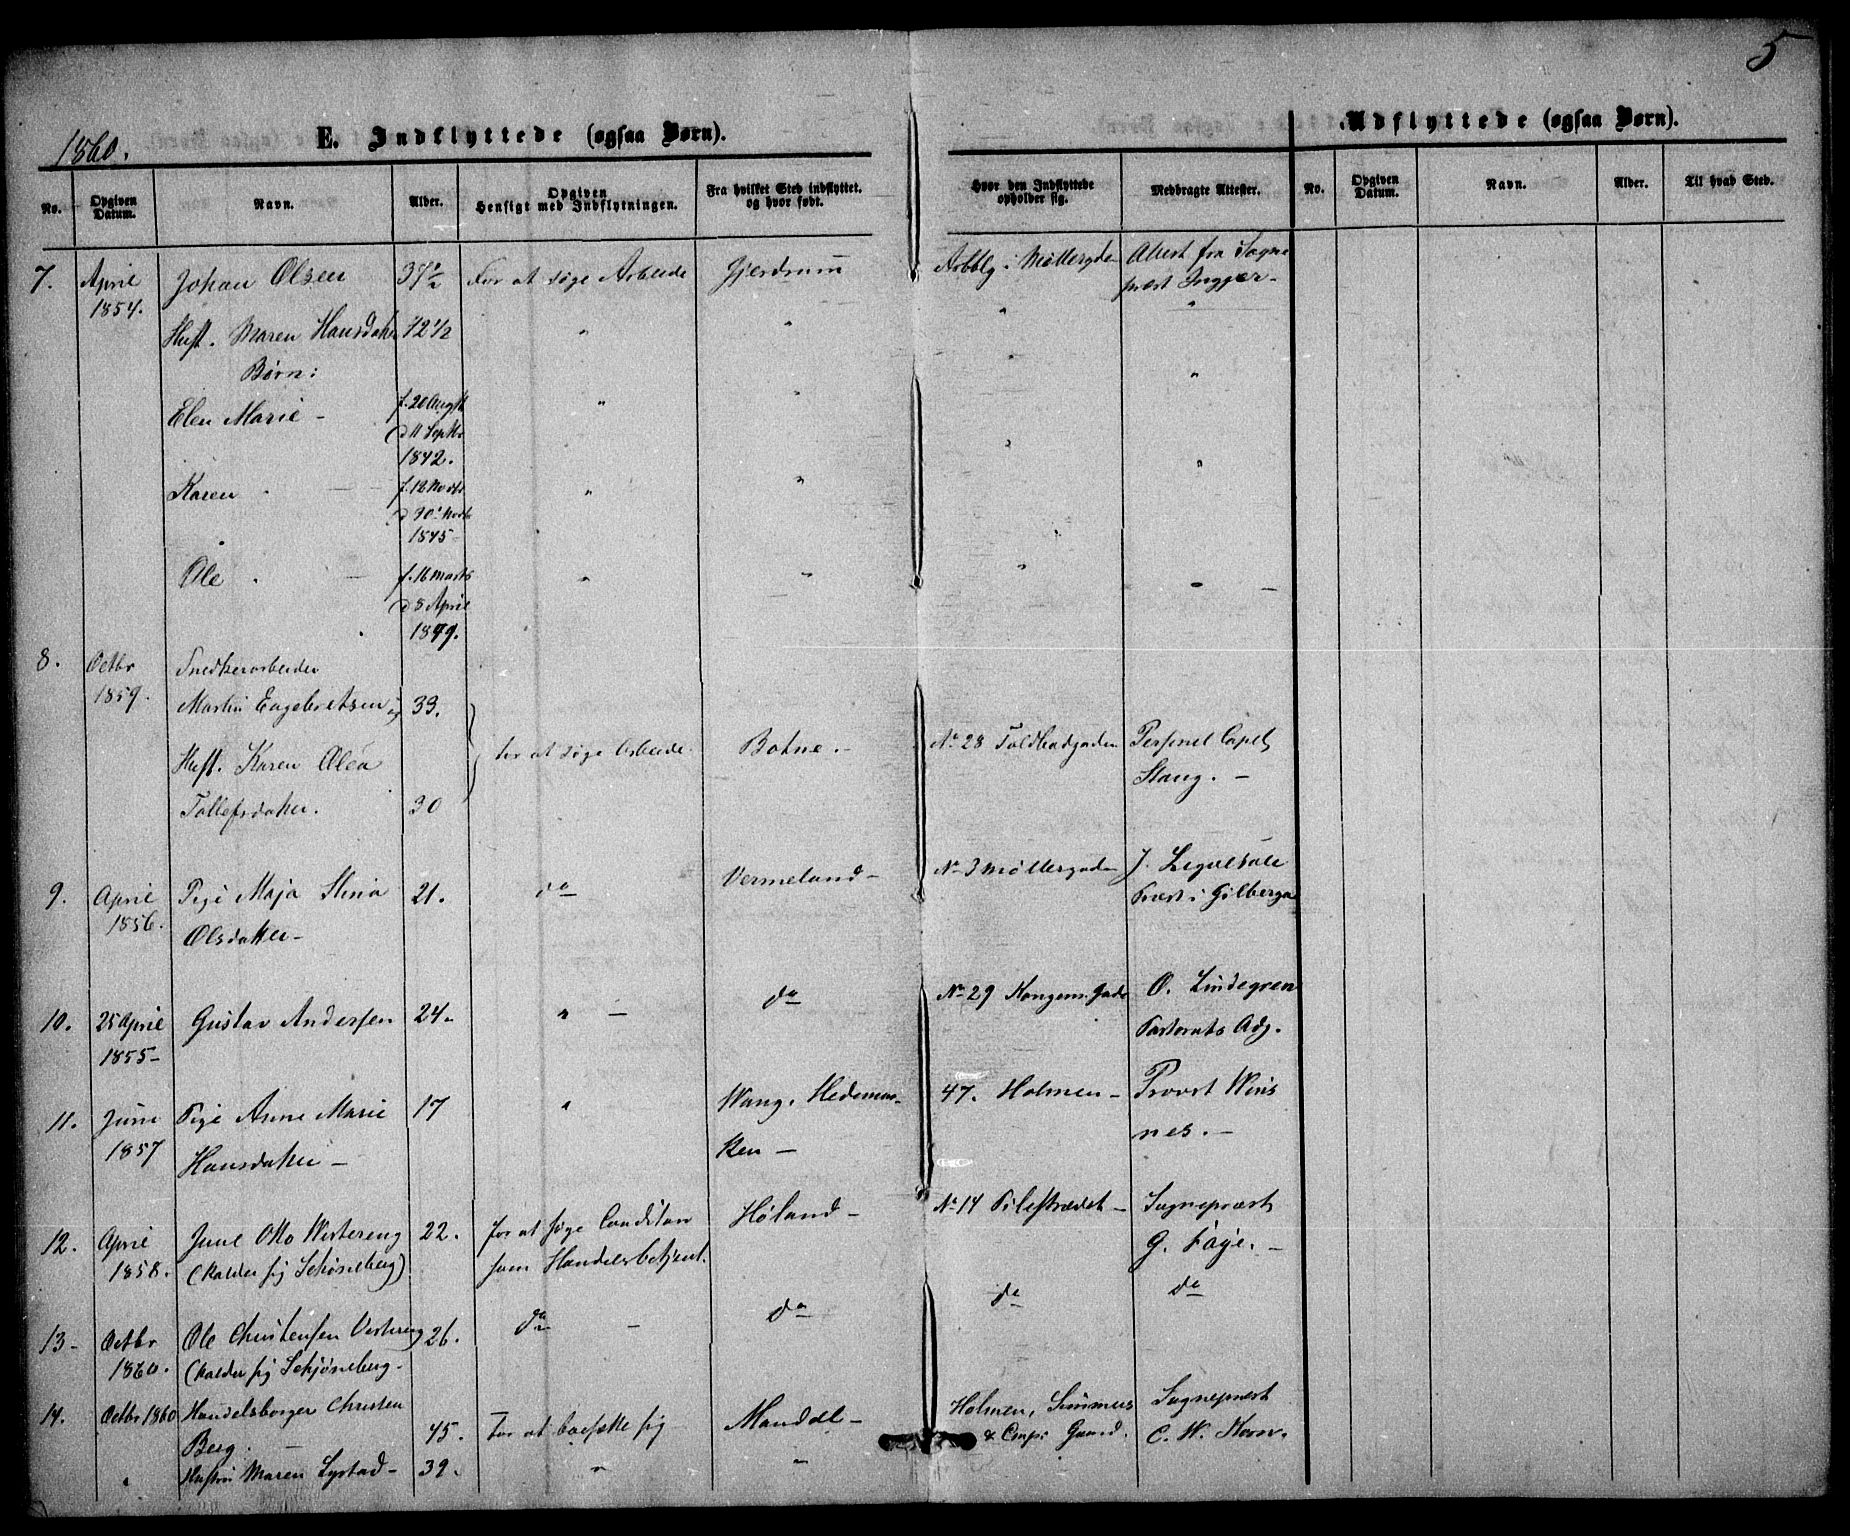 5
1860.
E. Indflyttede (ogsaa Børn).
Udflyttede (ogsaa Børn).
No. Opgiven Datum. Navn. Alder. Opgiven Hensigt med Indflytningen. Fra hvilket Sted indflyttet. og hvor født. Hvor den Indflyttede opholder sig. Medbragte Attester. No. Opgiven Datum. Navn. Alder. Til hvad Sted.
7. April Johan Olsen 37½ For at søge Arbeide Gjerdrum Arbbg i Møllergden Attest fra Sogne
1854. præst
Hust. Maren Hansdatter 42½ " " " "
Børn: "
Elen Marie - f. 20 Augst " " "
d 11 Septbr "
1842. "
Karen - f. 18 Novbr " "
d 30' Novbr
1845-
Ole - f. 16 Marts " " " -
d 8 April
1849.
8. Octbr Snedkerarbeider
1859. Martin Engebretsen og 33.
Hust. Karen Olea for at søge Arbeide. Botne. - No 28 Toldbodgaden Personel Capel
Stang. -
Tollefsdatter. 30
9. April Pige Maja Stina 21. do Vermeland - No 3 Møllergaden J.
1856. Olsdatter - Præst i Gilberga
10. 25 April Gustav Andersen 24. " - do No 29 Kongens Gade O. Lindegren
1855- Pastorats Adj.
11. Juni Pige Anne Marie 17 " Wang. Hedemar- 47. Holmen - Provst Wins
1857 Hansdatter - ken - nes. -
12. April June Otto Westereng 22. for at søge Condition Høland - No 14 Pilestrædet - Sognepræst
1858. (kalder sig Schøneberg) som Handelsbetjent. G. Faye. -
13- Octbr Ole Christensen Vestereng 26. do - do do do
1860. (kalder sig Schjøneberg -
14. Octbr 1860 Handelsborger Christen 45. for at bosætte sig Mandal - Holmen, Sognepræst
Berg. - & Comp: Gaard. C. W.
" Hustru Maren Lystad - 39. " "